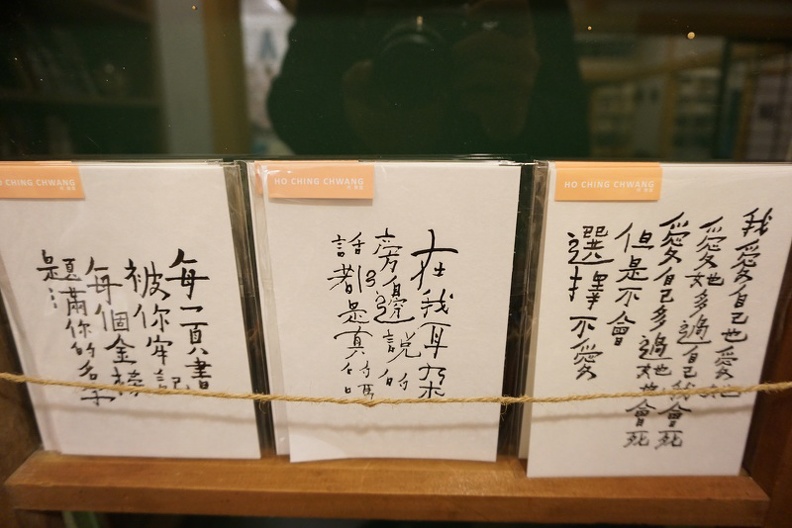 O CHING CHWANG
每一頁書
被你牢記
每個金榜
題滿你的名字
HO CHING CHWANG
在我耳朵
旁邊說的
話都是真的嗎
HO CHING CHWANG
我愛自己也愛她
愛她多過自己我會死
愛自己多過她她會死
但是不會
選擇不愛